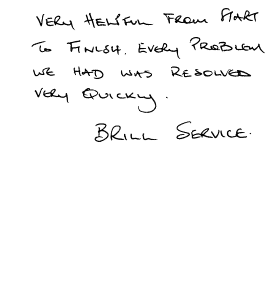 VERY HELPFUL FROM START
TO FINISH. EVERY PROBLEM
WE HAD WAS RESOLVED
VERY QUICKLY.
BRILL SERVICE.